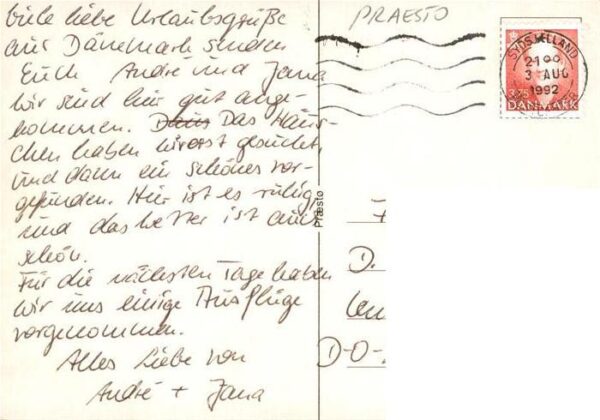 Viele liebe Urlaubsgrüße
aus Dänemark senden
Euch André und Jana
Wir sind hier gut ange-
kommen. Das Häus-
chen haben wir erst gesucht,
und dann ein schönes vor-
gefunden. Hier ist es ruhig,
und das Wetter ist auch
schön.
Für die nächsten Tage haben
wir uns einige Ausflüge
vorgenommen.
Alles Liebe von
André + Jana
PRAESTO
SYDSJÆLLAND
2100
3 AUG
1992
375
DANMARK
Præsto
D.
D-O-